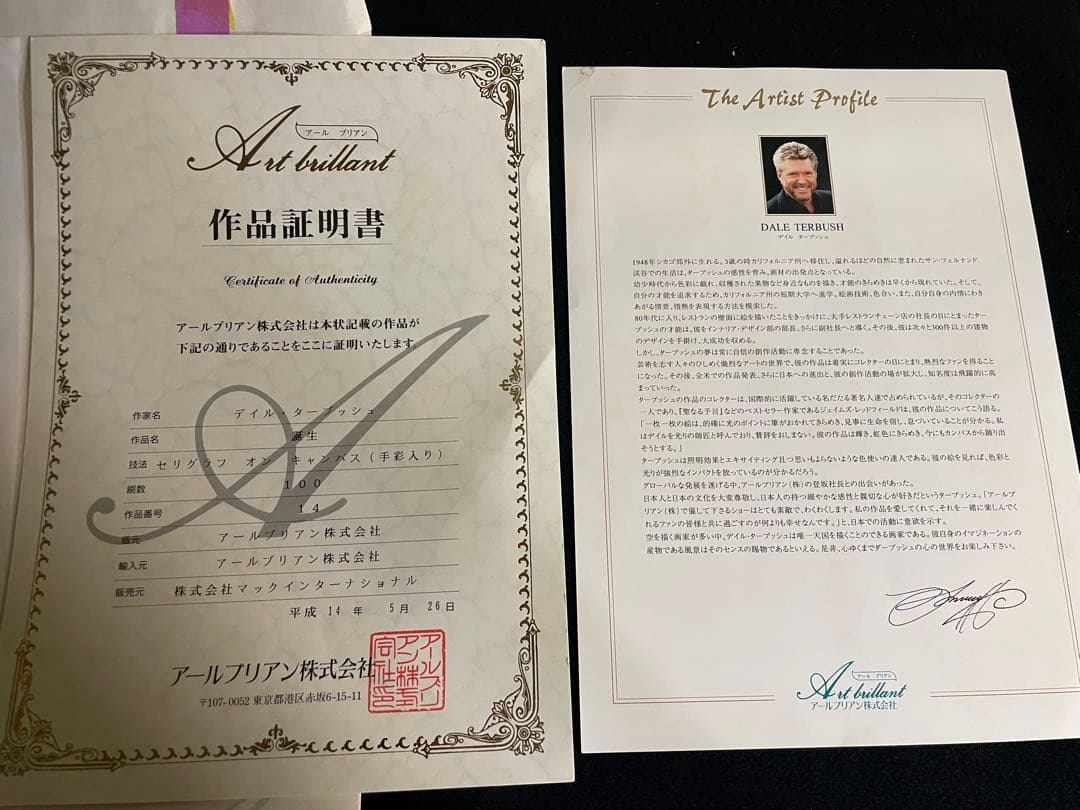 アール ブリアン
Art brillant
作品証明書
Certificate of Authenticity
アールブリアン株式会社は本状記載の作品が
下記の通りであることをここに証明いたします
作家名 デイル・ターブッシュ
作品名 誕生
技法 セリグラフ オン キャンバス（手彩入り）
刷数 100
作品番号 14
版元 アールブリアン株式会社
輸入元 アールブリアン株式会社
販売元 株式会社マックインターナショナル
平成 14 年 5月 26日
アールブリアン株式会社
〒107-0052 東京都港区赤坂6-15-11
アールブリ
アン株式
会社印
The Artist Profile
DALE TERBUSH
デイル ターブッシュ
1948年シカゴ郊外に生れる。3歳の時カリフォルニア州へ移住し、溢れるほどの自然に恵まれたサン・フェルナンド
渓谷での生活は、ターブッシュの感性を育み、画材の出発点となっている。
幼少時代から色彩に戯れ、収穫された果物など身近なものを描き、才能のきらめきは早くから現れていた。そして、
自分の才能を追求するため、カリフォルニア州の短期大学へ進学。絵画技術、色合い、また、自分自身の内情にわき
あがる情景、情熱を表現する方法を模索した。
80年代に入り、レストランの壁面に絵を描いたことをきっかけに、大手レストランチェーン店の社長の目にとまったター
ブッシュの才能は、彼をインテリア・デザイン部の部長、さらに副社長へと導く。その後、彼は次々と300件以上の建物
のデザインを手掛け、大成功を収める。
しかし、ターブッシュの夢は常に自信の創作活動に専念することであった。
芸術を志す人々のひしめく熾烈なアートの世界で、彼の作品は着実にコレクターの目にとまり、熱烈なファンを得ること
になった。その後、全米での作品発表、さらに日本への進出と、彼の創作活動の場が拡大し、知名度は飛躍的に高
まっていった。
ターブッシュの作品のコレクターは、国際的に活躍している名だたる著名人達で占められているが、そのコレクターの
一人であり、『聖なる予言』などのベストセラー作家であるジェイムズ・レッドフィールドは、彼の作品についてこう語る。
「一枚一枚の絵は、的確に光のポイントに筆がおかれてきらめき、見事に生命を宿し、息づいていることが分かる。私
はデイルを光りの師匠と呼んでおり、賛辞をおしまない。彼の作品は輝き、虹色にきらめき、今にもカンバスから踊り出
そうとする。」
ターブッシュは照明効果とエキサイティング且つ思いもよらないような色使いの達人である。彼の絵を見れば、色彩と
光りが強烈なインパクトを放っているのが分かるだろう。
グローバルな発展を遂げる中、アールブリアン（株）の登坂社長との出会いがあった。
日本人と日本の文化を大変尊敬し、日本人の持つ細やかな感性と親切な心が好きだというターブッシュ。「アールブ
リアン（株）で催して下さるショーはとても素敵で、わくわくします。私の作品を愛してくれて、それを一緒に楽しんでく
れるファンの皆様と共に過ごすのが何よりも幸せなんです。」と、日本での活動に意欲を示す。
空を描く画家が多い中、デイル・ターブッシュは唯一天国を描くことのできる画家である。彼自身のイマジネーションの
産物である風景はそのセンスの賜物であるといえる。是非、心ゆくまでターブッシュの心の世界をお楽しみ下さい。
アール ブリアン
Art brillant
アールブリアン株式会社